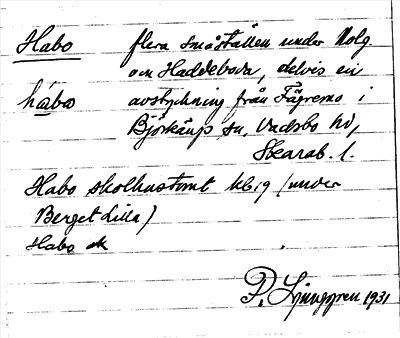 Habo flera småställen under Nolg.
och Haddeboda, delvis en
hábo avstyckning från Fägremo i
Björkängs sn, Vadsbo hd,
Skarab. l.
Habo skolhustomt kb 19 (under
Berget Lilla)
Habo
P. Ljunggren 1931